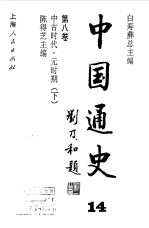 白寿彝总主编
中国通史
14
第八卷
中古时代·元时期（下）
陈得芝主编
刘乃和题
上海人民出版社